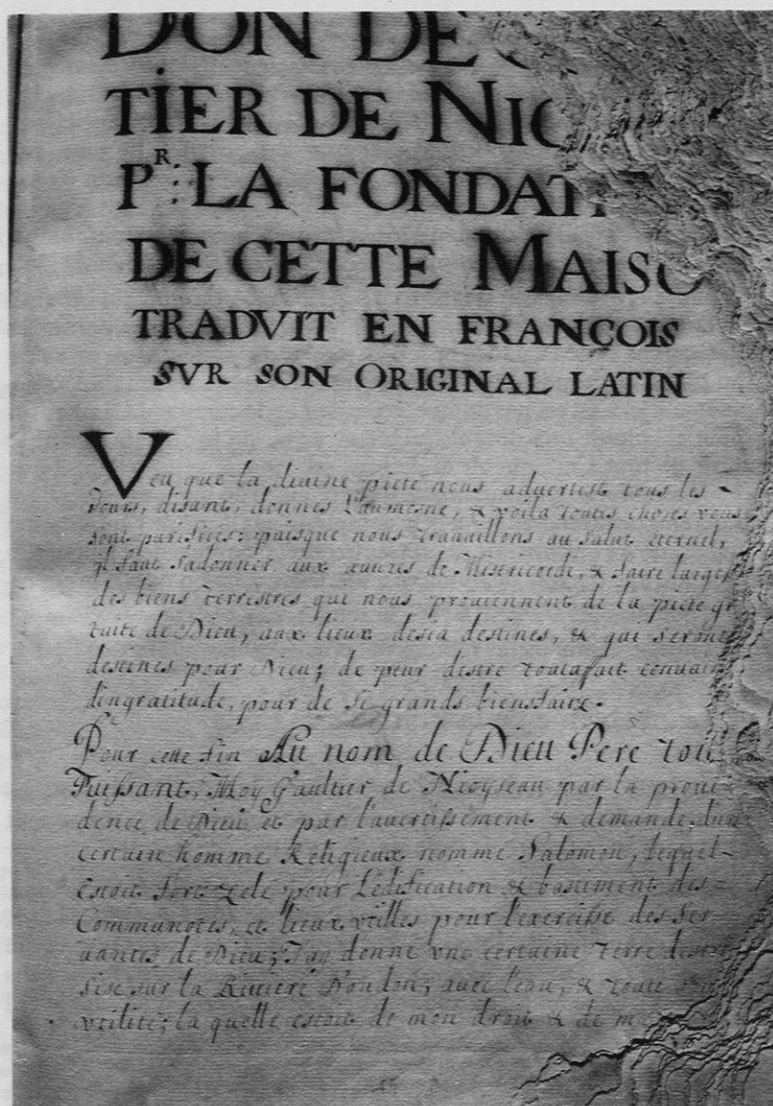 DON DE
TIER DE NIO
PR: LA FONDAT
DE CETTE MAISO
TRADVIT EN FRANÇOIS
SVR SON ORIGINAL LATIN
Veu que la diuine piete nous aduertist tous les
Jours, disant, donnes L'aumosne, & voila toutes choses vous
sont purifiees: puisque nous trauaillons au salut eternel,
Il faut sadonner aux œuures de Misericorde, & faire larges
des biens terrestres qui nous prouiennent de la piete gr
tuite de Dieu, aux lieux desia destines, & qui seront
destines pour Dieu; de peur destre toutafait conuain
dingratitude, pour de si grands biensfaicts.
Pour cette fin Au nom de Dieu Pere tou
Puissant, Moy Gaultier de Nioyseau par la proui
dence de Dieu et par l'auertissement & demande dun
certain homme Religieux nomme Salomon, lequel
Estoit fort zele pour L'edification & bastiment des
Communotes, et lieux vtilles pour l'exercise des ser
uantes de Dieu; Jay donne vne certaine terre
sise sur la Riuiere D'oudon, auec l'eau, & toute
vtilite; la quelle estoit de mon droit & de m